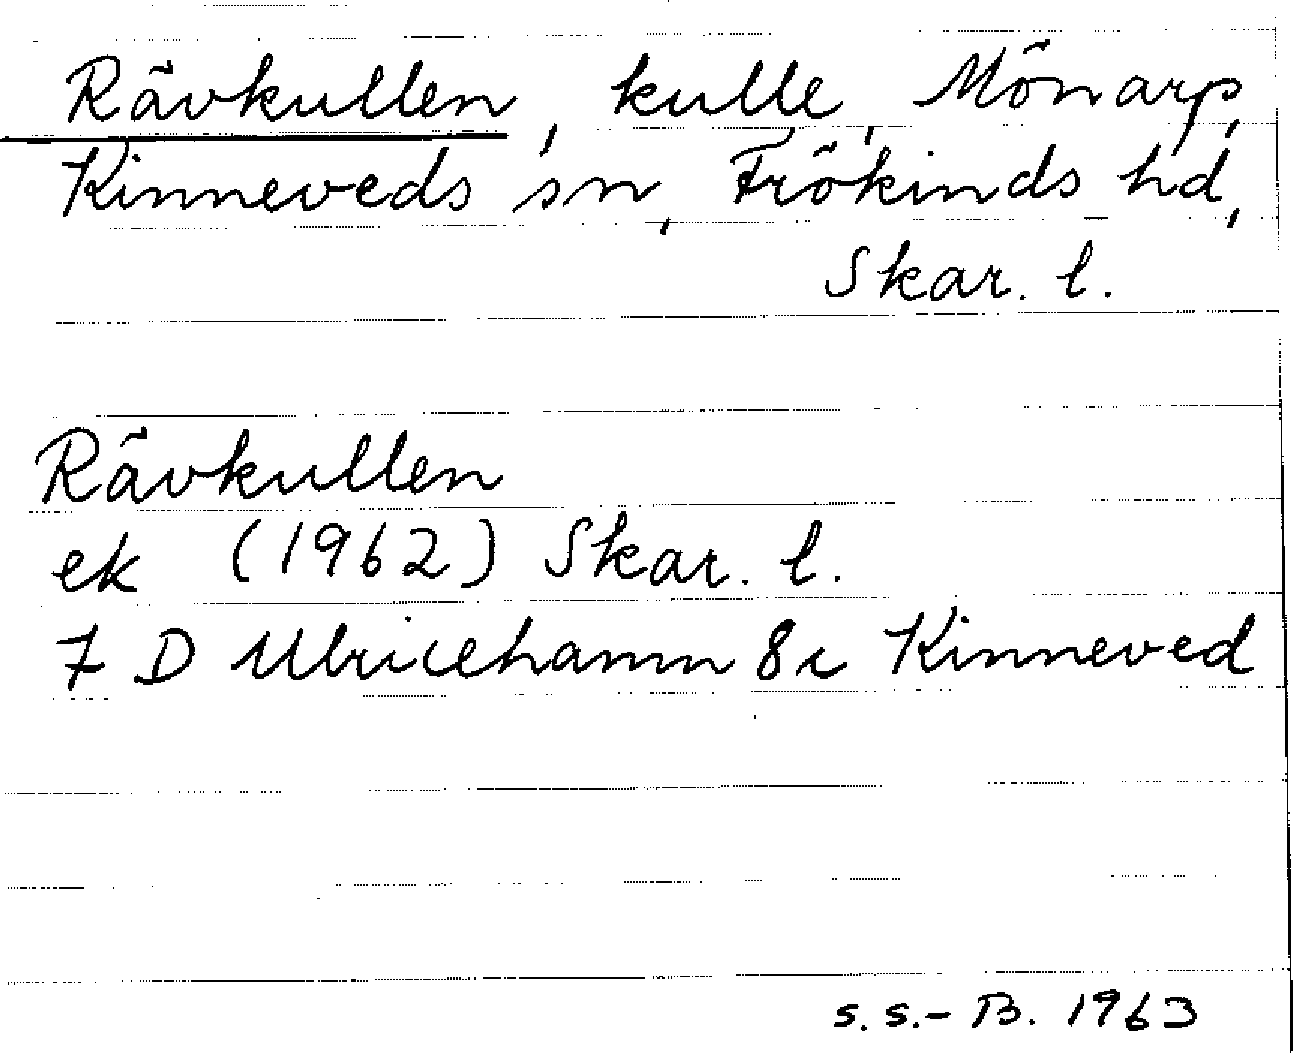 Rävkullen, kulle, Mönarp,
Kinneveds sn, Frökinds hd,
Skar. l.
Rävkullen
ek (1962) Skar. l.
7 D Ulricehamn 8c Kinneved
s.s.-B. 1963